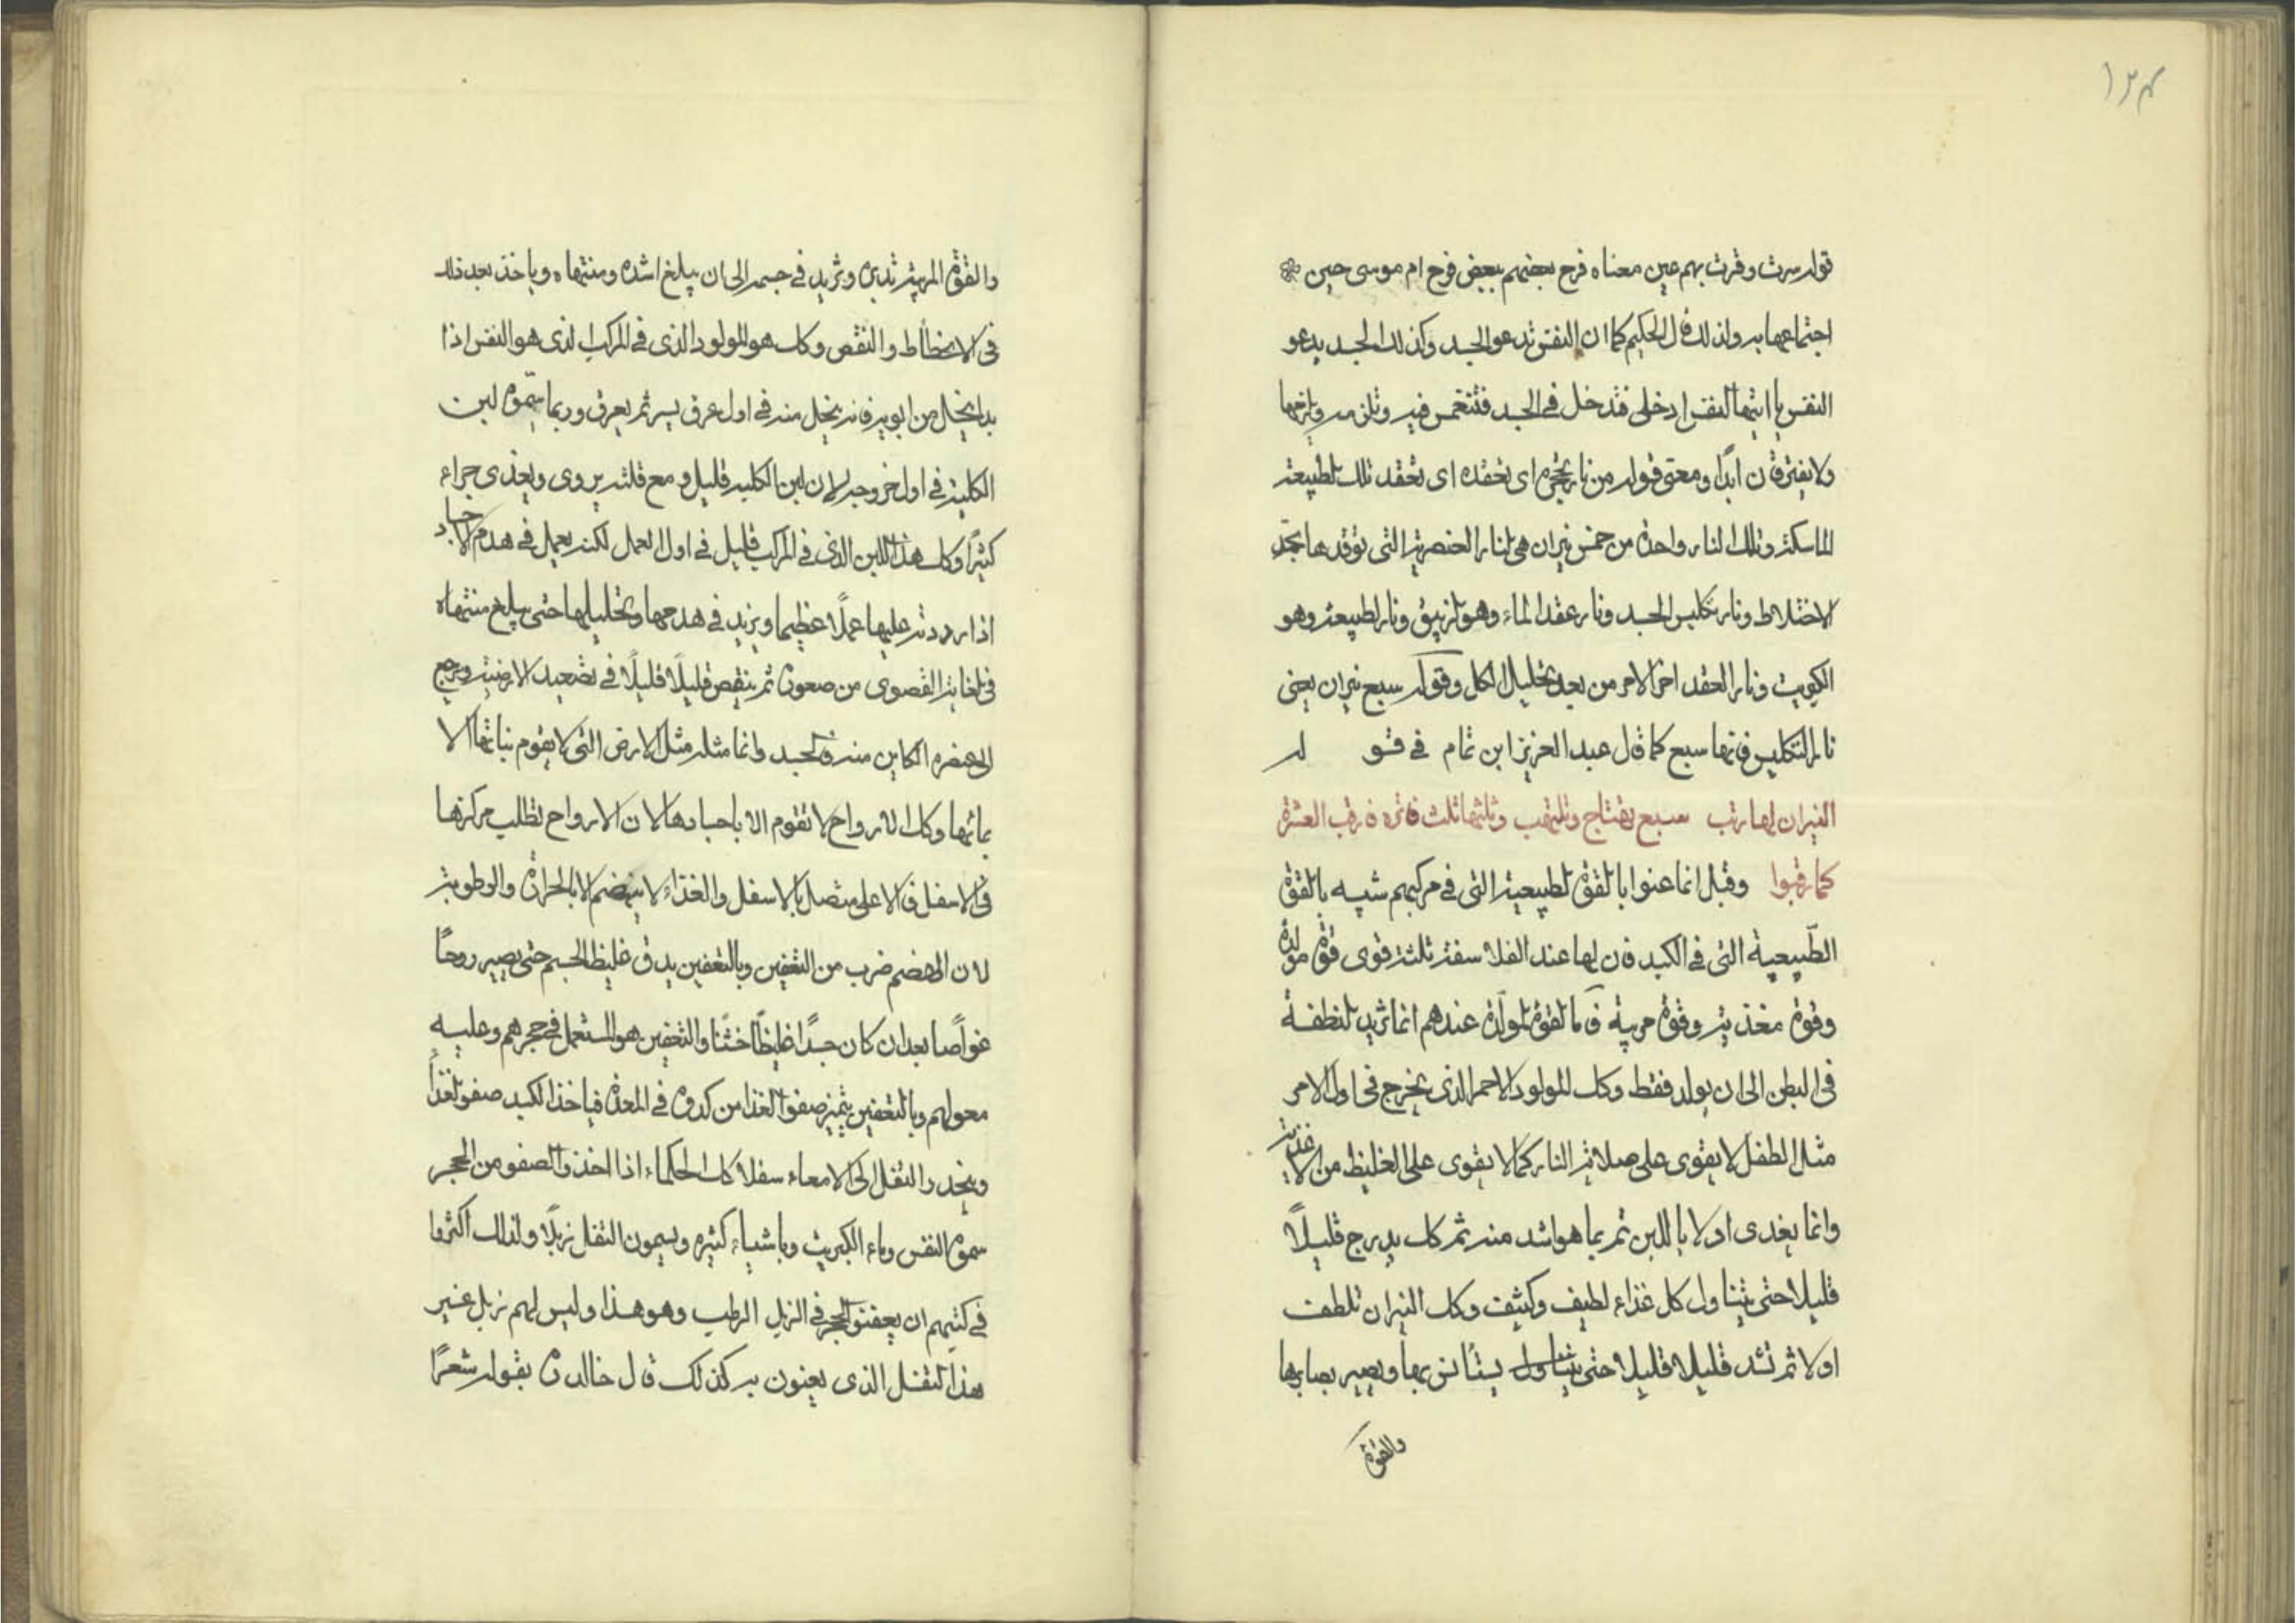 ١٣٤
قوله سرت وقرت بهم عين معناه فرح بعضهم ببعض فرح ام موسى حين
اجتماعها به ولذلك قال الحكيم كما ان النفس تدعو الجسد وكذلك الجسد يدعو
النفس يا ايتها النفس ادخلى فتدخل في الجسد فتنغمس فيه وتلزمه ويلزمها
ولا يفترقان ابدًا ومعنى قوله من نار تحزه اى تعقده اى تعقد تلك الطبيعة
الماسكة وتلك النار واحدة من خمس نيران هى النار العنصرية التى توقدها
الاختلاط ونار تكليس الجسد ونار عقد الماء وهو الزيبق ونار الطبيعة وهو
الكبريت ونار العقد اخر الامر من بعد تحليل الكل وقوله سبع نيران يعنى
نار التكليس فانها سبع كما قال عبد العزيز ابن تمام في قوله
النيران لها رتب سبع تهتاج وتلتهب وثلثها ثلث فاتره فارقب العشرة
كما رقبوا وقيل انما عنوا بالقوة الطبيعية التى فى مركبهم شبيه بالقوة
الطّبيعية التى فى الكبد فان لها عند الفلاسفة ثلثة قوى قوة مولدة
وقوة مغذية وقوة مربية فاما القوة المولّدة عندهم انما تريد النطفة
فى البطن الى ان يولد فقط وكك المولود الاحمر الذى يخرج فى اول الامر
مثال الطفل لا يقوى على صلابة النار كما لا يقوى على الغليظ من الاغذية
وانما يغدى اولا باللبن ثم بما هو اشد منه ثم كك يدرج قليلًا
قليلا حتى يتناول كل غذاء لطيف وكثيف وكك النيران تلطف
اولا ثم تشد قليلا قليلا حتى يتناول يستانس بها ويصير يصابرها
والقوة
والقوة المربية تدبره وتزيد فى جسمه الى ان يبلغ اشده ومنتهاه وياخذ بعد ذلك
فى الانحطاط والنقص وكك هو المولود الذى فى المركب الذى هو النفس اذا
بدا ينحل من ابويه فانه ينحل منه فى اول عرق يسير ثم يعرق وربما سمّوه لبن
الكلبة فى اول خروجه لان لبن الكلبة قليل ومع قلته يروى ويغذى جراء
كثيرًا وكك هذا اللبن الذى فى المركب قليل فى اول العمل لكنه يعمل فى هدم الاجساد
اذا رددته عليها عملًا عظيما ويزيد فى هدمها وتحليلها حتى يبلغ منتهاه
فى الغاية القصوى من صعوده ثم ينقص قليلًا قليلًا فى تصعيد الارضية ويرجع
الى عنصره الكاين منه فى الجسد وانما مثله مثل الارض التى لا يقوم نباتها الا
بمائها وكك الارواح لا تقوم الا باجسادها لان الارواح تطلب مركزها
فى الاسفل فالاعلى متصل بالاسفل والغذاء لا ينهضم الا بالحرارة والرطوبة
لان الهضم ضرب من التعفين وبالتعفين يدق غليظ الجسم حتى يصير روحًا
غواصا بعد ان كان جسدًا غليظًا خشنًا والتعفين هو المستعمل فى حجرهم وعليه
معولهم وبالتعفين يتميز صفو الغذا من كدره فى المعدة فياخذ الكبد صفو الغذا
وينحدر الثفل الى الامعاء سفلا كك الحكماء اذا اخذوا الصفو من الحجر
سموه النفس وماء الكبريت وباشياء كثيره ويسمون الثفل زبلًا ولذلك اكثروا
فى كتبهم ان يعفنوا الحجر فى الزبل الرطب وهو هذا وليس لهم زبل غير
هذا الثفل الذى يعنون به كذلك قال خالد بقوله شعرًا